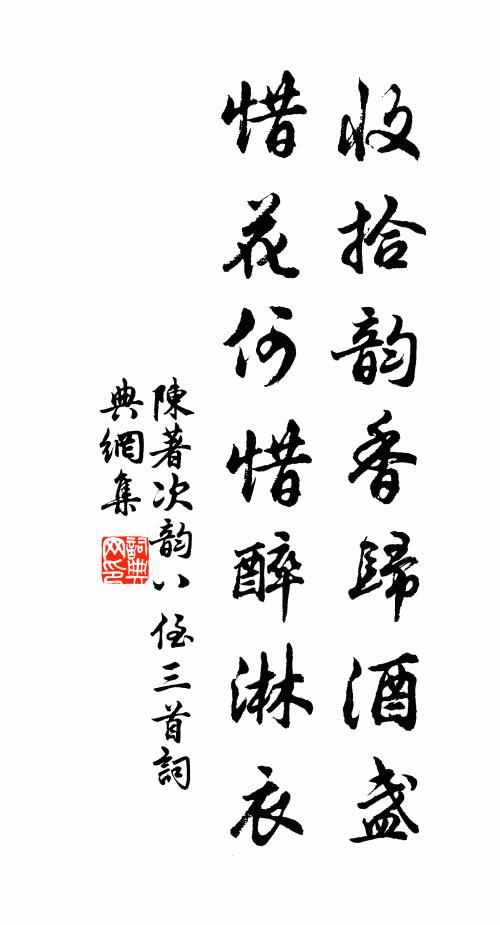 收拾韵香歸酒盞
惜花何惜醉淋衣
陳著次韵八侄三首詞
典網集
詞典網印